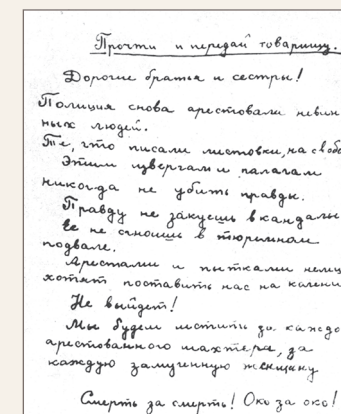 Прочти и передай товарищу.
Дорогие братья и сестры!
Полиция снова арестовали невин
ных людей.
Те, что писали листовки, на свобо
Этим извергам и палачам
никогда не убить правды.
Правду не закуешь в кандалы
Ее не сгноишь в тюремном
подвале.
Арестами и пытками немцы
хотят поставить нас на колени
Не выйдет!
Мы будем мстить за каждо
арестованного шахтера, за
каждую замученную женщину
Смерть за смерть! Око за око!